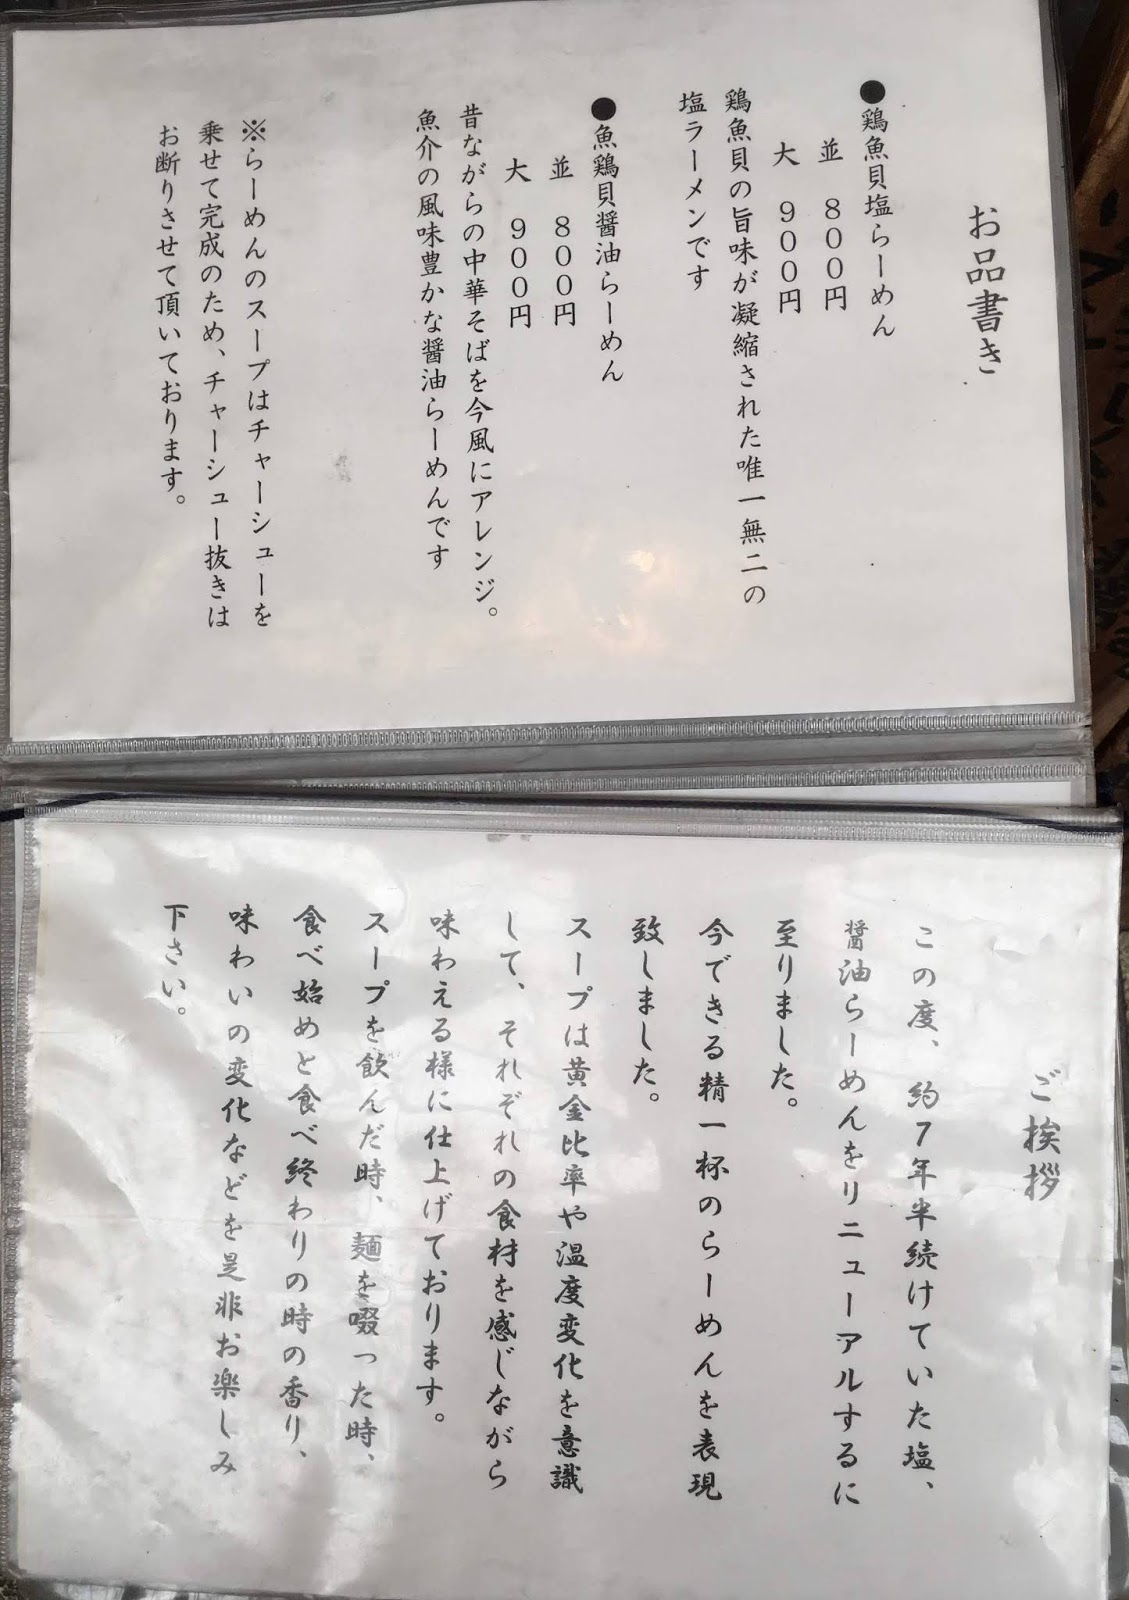 お品書き
●鶏魚貝塩らーめん
並 800円
大 900円
鶏魚貝の旨味が凝縮された唯一無二の
塩ラーメンです
●魚鶏貝醤油らーめん
並 800円
大 900円
昔ながらの中華そばを今風にアレンジ。
魚介の風味豊かな醤油らーめんです
※らーめんのスープはチャーシューを
乗せて完成のため、チャーシュー抜きは
お断りさせて頂いております。
ご挨拶
この度、約7年半続けていた塩、
醤油らーめんをリニューアルするに
至りました。
今できる精一杯のらーめんを表現
致しました。
スープは黄金比率や温度変化を意識
して、それぞれの食材を感じながら
味わえる様に仕上げております。
スープを飲んだ時、麺を啜った時、
食べ始めと食べ終わりの時の香り、
味わいの変化などを是非お楽しみ
下さい。